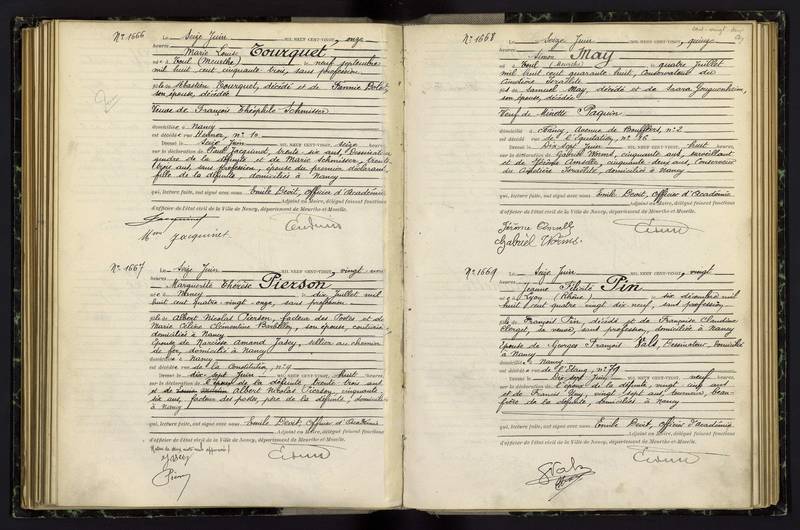 N° 1666
Le Seize Juin MIL NEUF CENT-VINGT, onze
heures
Marie Louise Tourquet
né e à Toul (Meurthe) le neuf septembre
mil huit cent cinquante trois, sans profession
fille de Sébastien Tourquet, décédé et de Fannie
son épouse, décédée
Veuve de François Théophile Schmisser
domicilié e à Nancy
est décédé e rue n° 10
Dressé le Seize Juin MIL NEUF CENT-VINGT, seize heures
sur la déclaration de Paul Jacquinet, trente six ans, Dessinateur
gendre de la défunte et de Marie Schmisser, trente
trois ans, sans profession, épouse du premier déclarant,
fille de la défunte, domiciliés à Nancy
qui, lecture faite, ont signé avec nous Emile Devit, officier d'Académie
Adjoint au Maire, délégué faisant fonctions
d'officier de l'état civil de la Ville de Nancy, département de Meurthe-et-Moselle.
Jacquinet
Mme Jacquinet
N° 1667
Le Seize Juin MIL NEUF CENT-VINGT, vingt
heures
Marguerite Thérèse Pierson
né e à Nancy le dix Juillet mil
huit cent quatre-vingt-onze, sans profession
fille de Albert Nicolas Pierson, facteur des Postes et de
Marie Céline Clémentine son épouse,
domiciliés à Nancy
Epouse de Narcisse Amand sellier au chemin
de fer, domicilié à Nancy
domicilié e à Nancy
est décédé e rue de la Constitution, n° 9
Dressé le dix sept Juin MIL NEUF CENT-VINGT, huit heures
sur la déclaration de l'époux de la défunte, trente trois ans
et de Albert Nicolas Pierson, cinquante
six ans, facteur des postes, père de la défunte, domiciliés
à Nancy
qui, lecture faite, ont signé avec nous Emile Devit, Officier d'Académie
Adjoint au Maire, délégué faisant fonctions
d'officier de l'état civil de la Ville de Nancy, département de Meurthe-et-Moselle.
N° 1668
Le Seize Juin MIL NEUF CENT-VINGT, quinze
heures
Simon May
né à Toul (Meurthe) le quatre Juillet
mil huit cent quarante huit, Conservateur du
Cimetière Israélite
fils de Samuel May, décédé et de
son épouse, décédée
Veuf de Minette Paquin
domicilié à Nancy, Avenue de Boufflers, n° 2
est décédé rue de l'Equitation, n° 16
Dressé le Dix sept Juin MIL NEUF CENT-VINGT, huit heures
sur la déclaration de Gabriel Worms, cinquante ans, surveillant
et de Jérôme cinquante deux ans, Conservateur
du Cimetière Israélite, domiciliés à Nancy
qui, lecture faite, ont signé avec nous Emile Devit, Officier d'Académie
Adjoint au Maire, délégué faisant fonctions
d'officier de l'état civil de la Ville de Nancy, département de Meurthe-et-Moselle.
Jérôme
Gabriel Worms
N° 1669
Le Seize Juin MIL NEUF CENT-VINGT, vingt
heures
Jeanne Pin
né e à Lyon (Rhône) le six décembre mil
huit cent quatre vingt dix neuf, sans profession
fille de François Pin, décédé et de Françoise Claudine
Clerget, sa veuve, sans profession, domiciliée à Nancy
Epouse de Georges François Dessinateur, domicilié
à Nancy
domicilié e à Nancy
est décédé e rue de l'Etang, n° 79
Dressé le Dix sept Juin MIL NEUF CENT-VINGT, neuf heures
sur la déclaration de l'époux de la défunte, vingt cinq ans
et de Francis vingt sept ans, tourneur, beau-
frère de la défunte, domiciliés à Nancy
qui, lecture faite, ont signé avec nous Emile Devit, officier d'académie
Adjoint au Maire, délégué faisant fonctions
d'officier de l'état civil de la Ville de Nancy, département de Meurthe-et-Moselle.